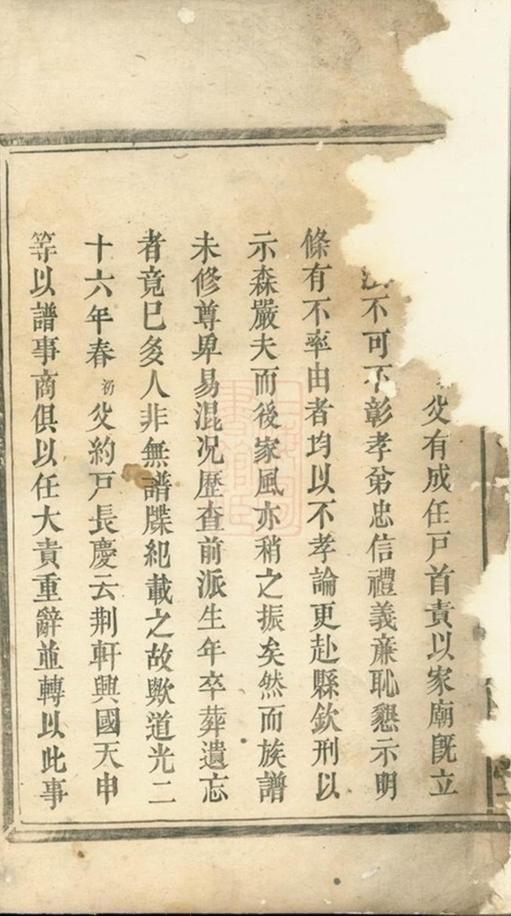 父有成任戸首責以家廟旣立
不可不彰孝弟忠信禮義亷恥懇示明
條有不率由者均以不孝論更赴縣欽刑以
示森嚴夫而後家風亦稍之振矣然而族譜
未修尊𤰞易混况歷查前派生年卒葬遺忘
者竟已多人非無譜牒紀載之故歟道光二
十六年春初父約戸長慶云荆軒興國天申
等以譜事商俱以任大責重辭並轉以此事